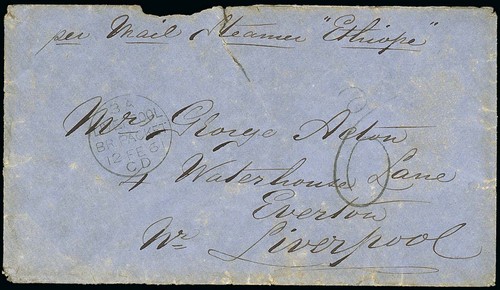 per Mail Steamer "Ethiope"
Mr. George Acton
4 Waterhouse Lane
Everton
Nr Liverpool
BR PACKET
CD
6